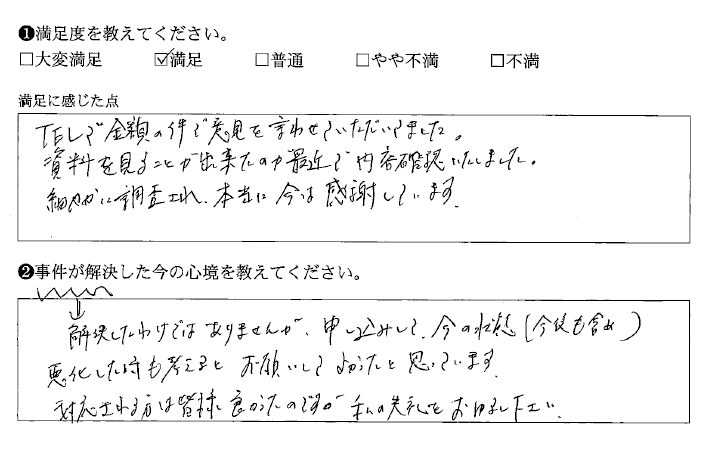 ❶満足度を教えてください。
□大変満足 ☑満足 □普通 □やや不満 □不満
満足に感じた点
TELで金額の件で意見を言わせていただいてました。
資料を見ることが出来たのが最近で内容確認いたしました。
細やかに調査され、本当に今は感謝しています。
❷事件が解決した今の心境を教えてください。
解決したわけではありませんが、申し込みして、今の状態(今後も含め)
悪化した時も考えるとお願いしてよかったと思っています。
対応される方は皆様良かったのですが私の失礼をお許し下さい。